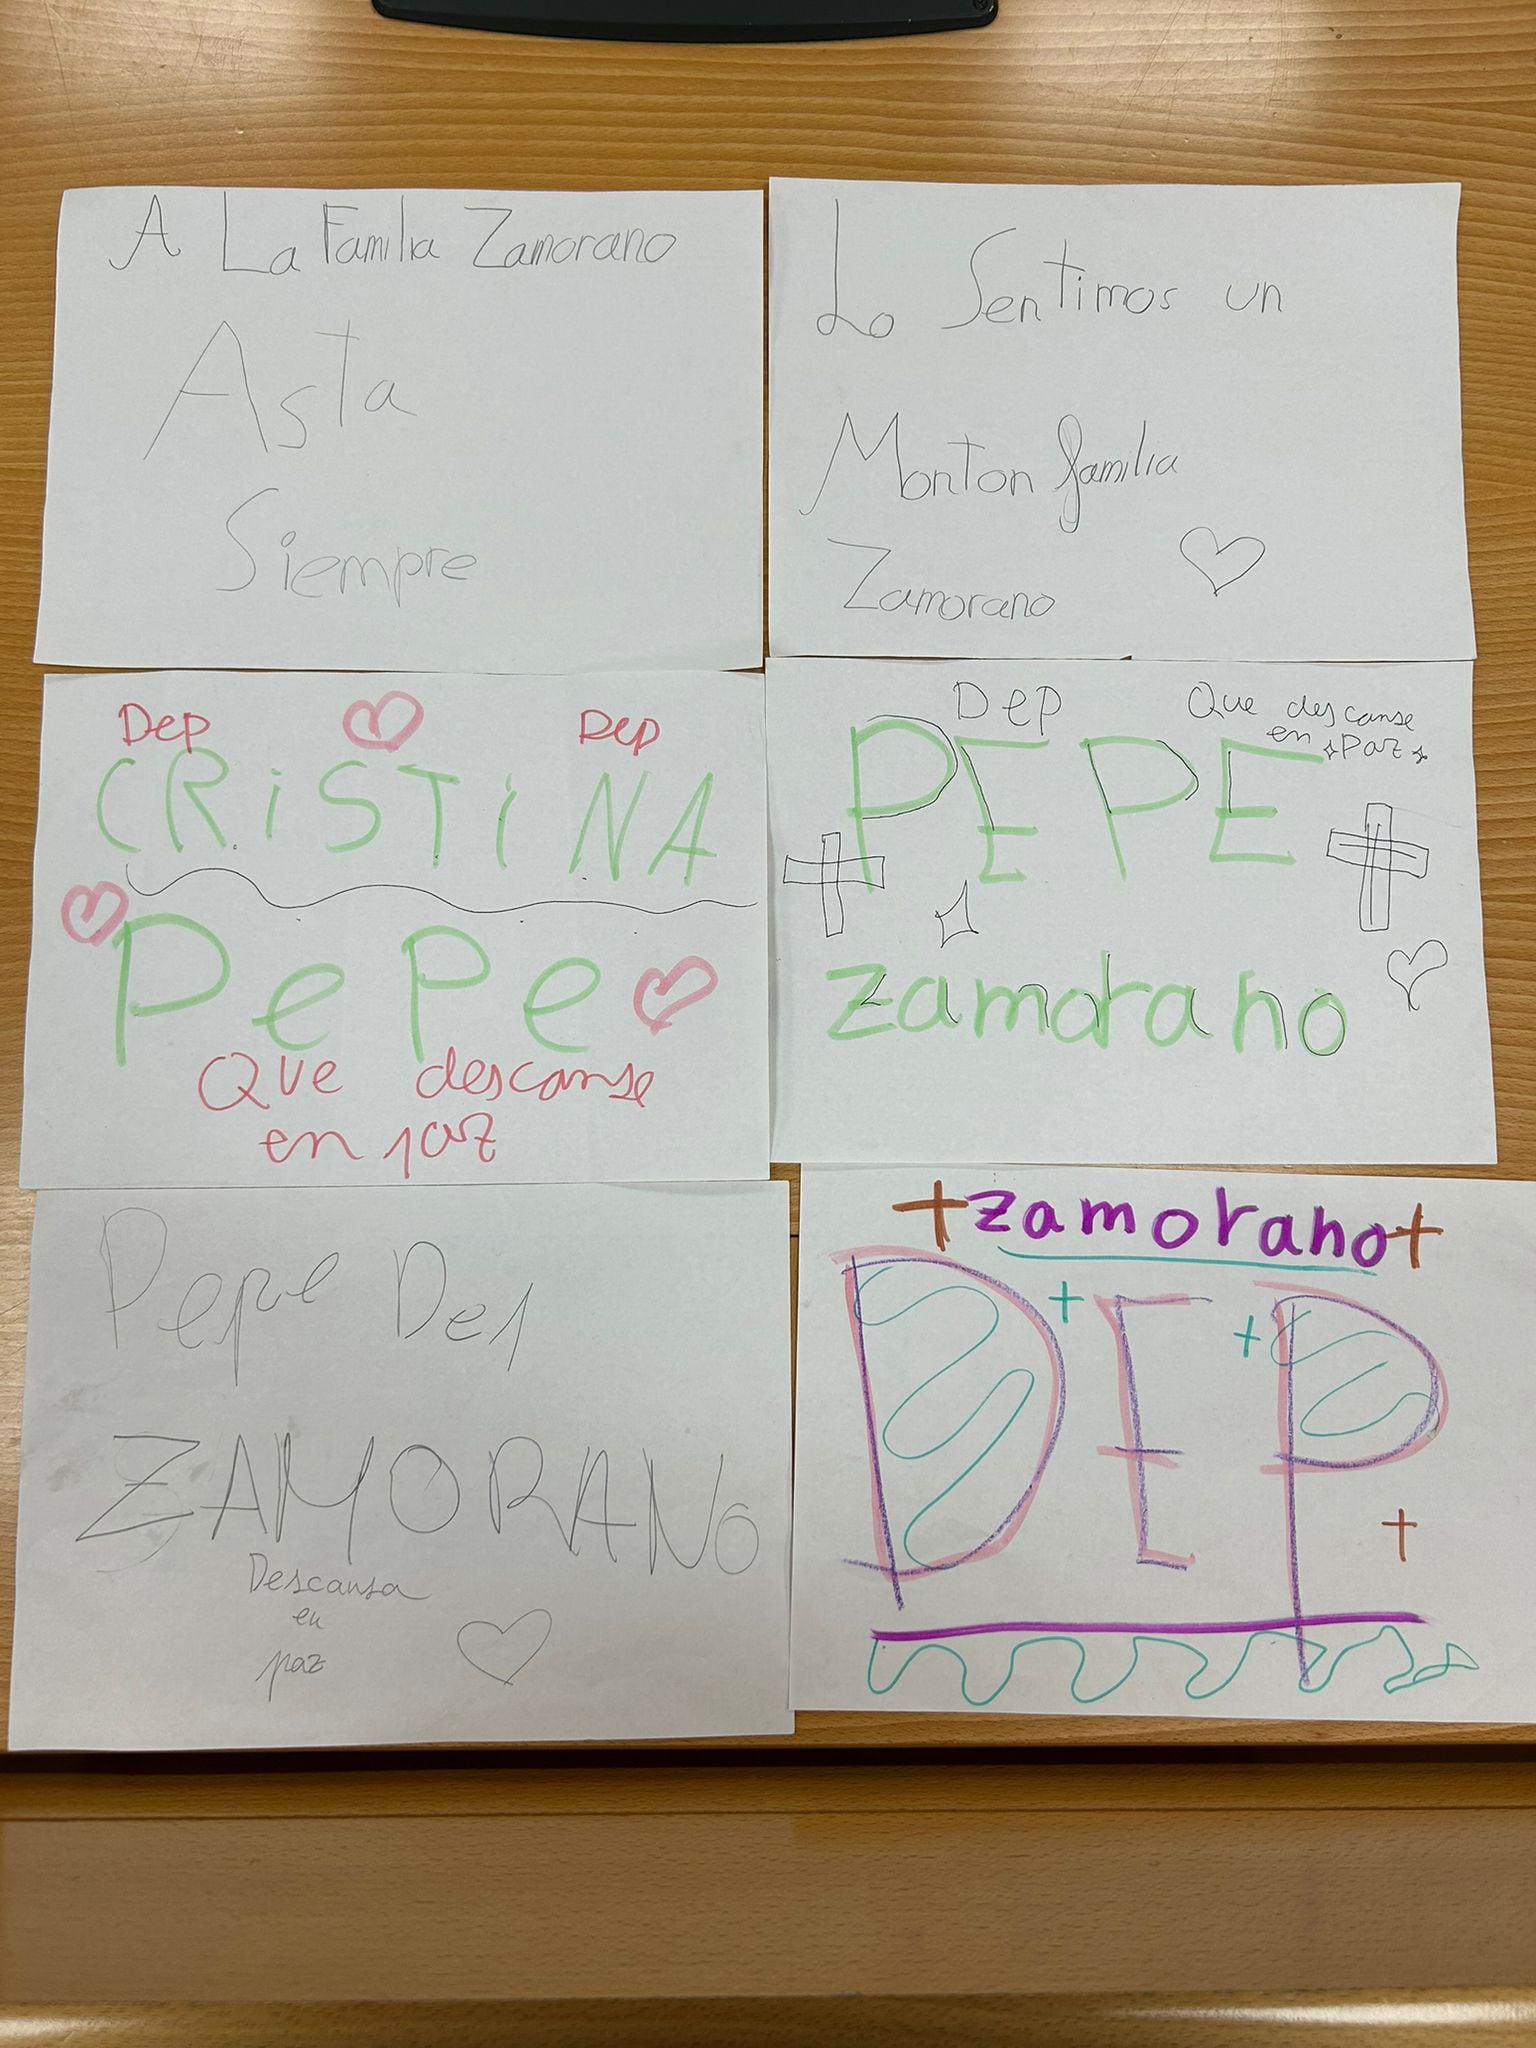 A La Familia Zamorano
Asta
Siempre
Lo Sentimos un
Monton familia
Zamorano
Dep Dep
CRiSTiNA
PePe
Que descanse
en paz
Dep
Que descanse
en paz
PEPE
zamorano
Pepe Dep
ZAMORANO
Descansa
en
paz
zamorano
DEP